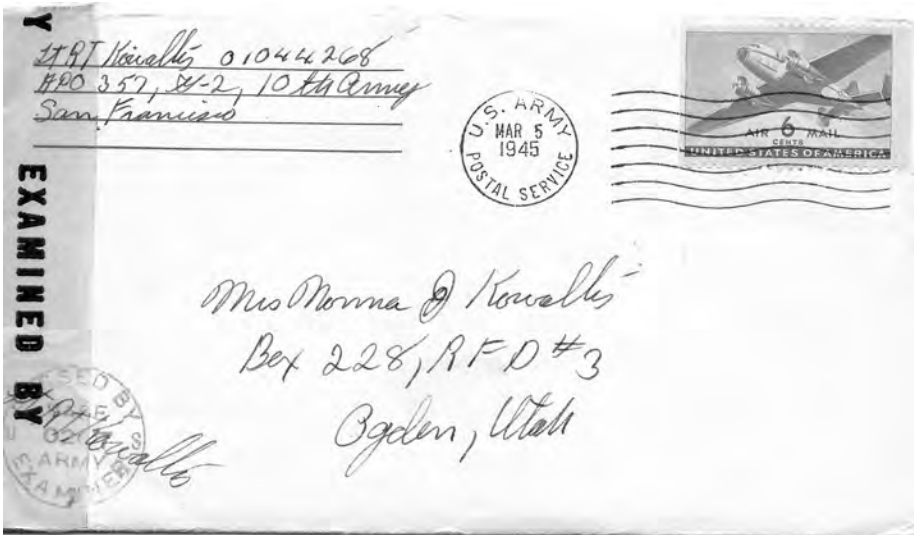 Lt RT Kowallis 01044268
APO 357, G-2, 10th Army
San Francisco
U.S. ARMY
MAR 5
1945
POSTAL SERVICE
AIR 6 MAIL
CENTS
UNITED STATES OF AMERICA
Y
EXAMINED BY
Mrs Norma J Kowallis
Box 228, RFD #3
Ogden, Utah
SED BY
ARMY
EXAMINER
RT Kowallis